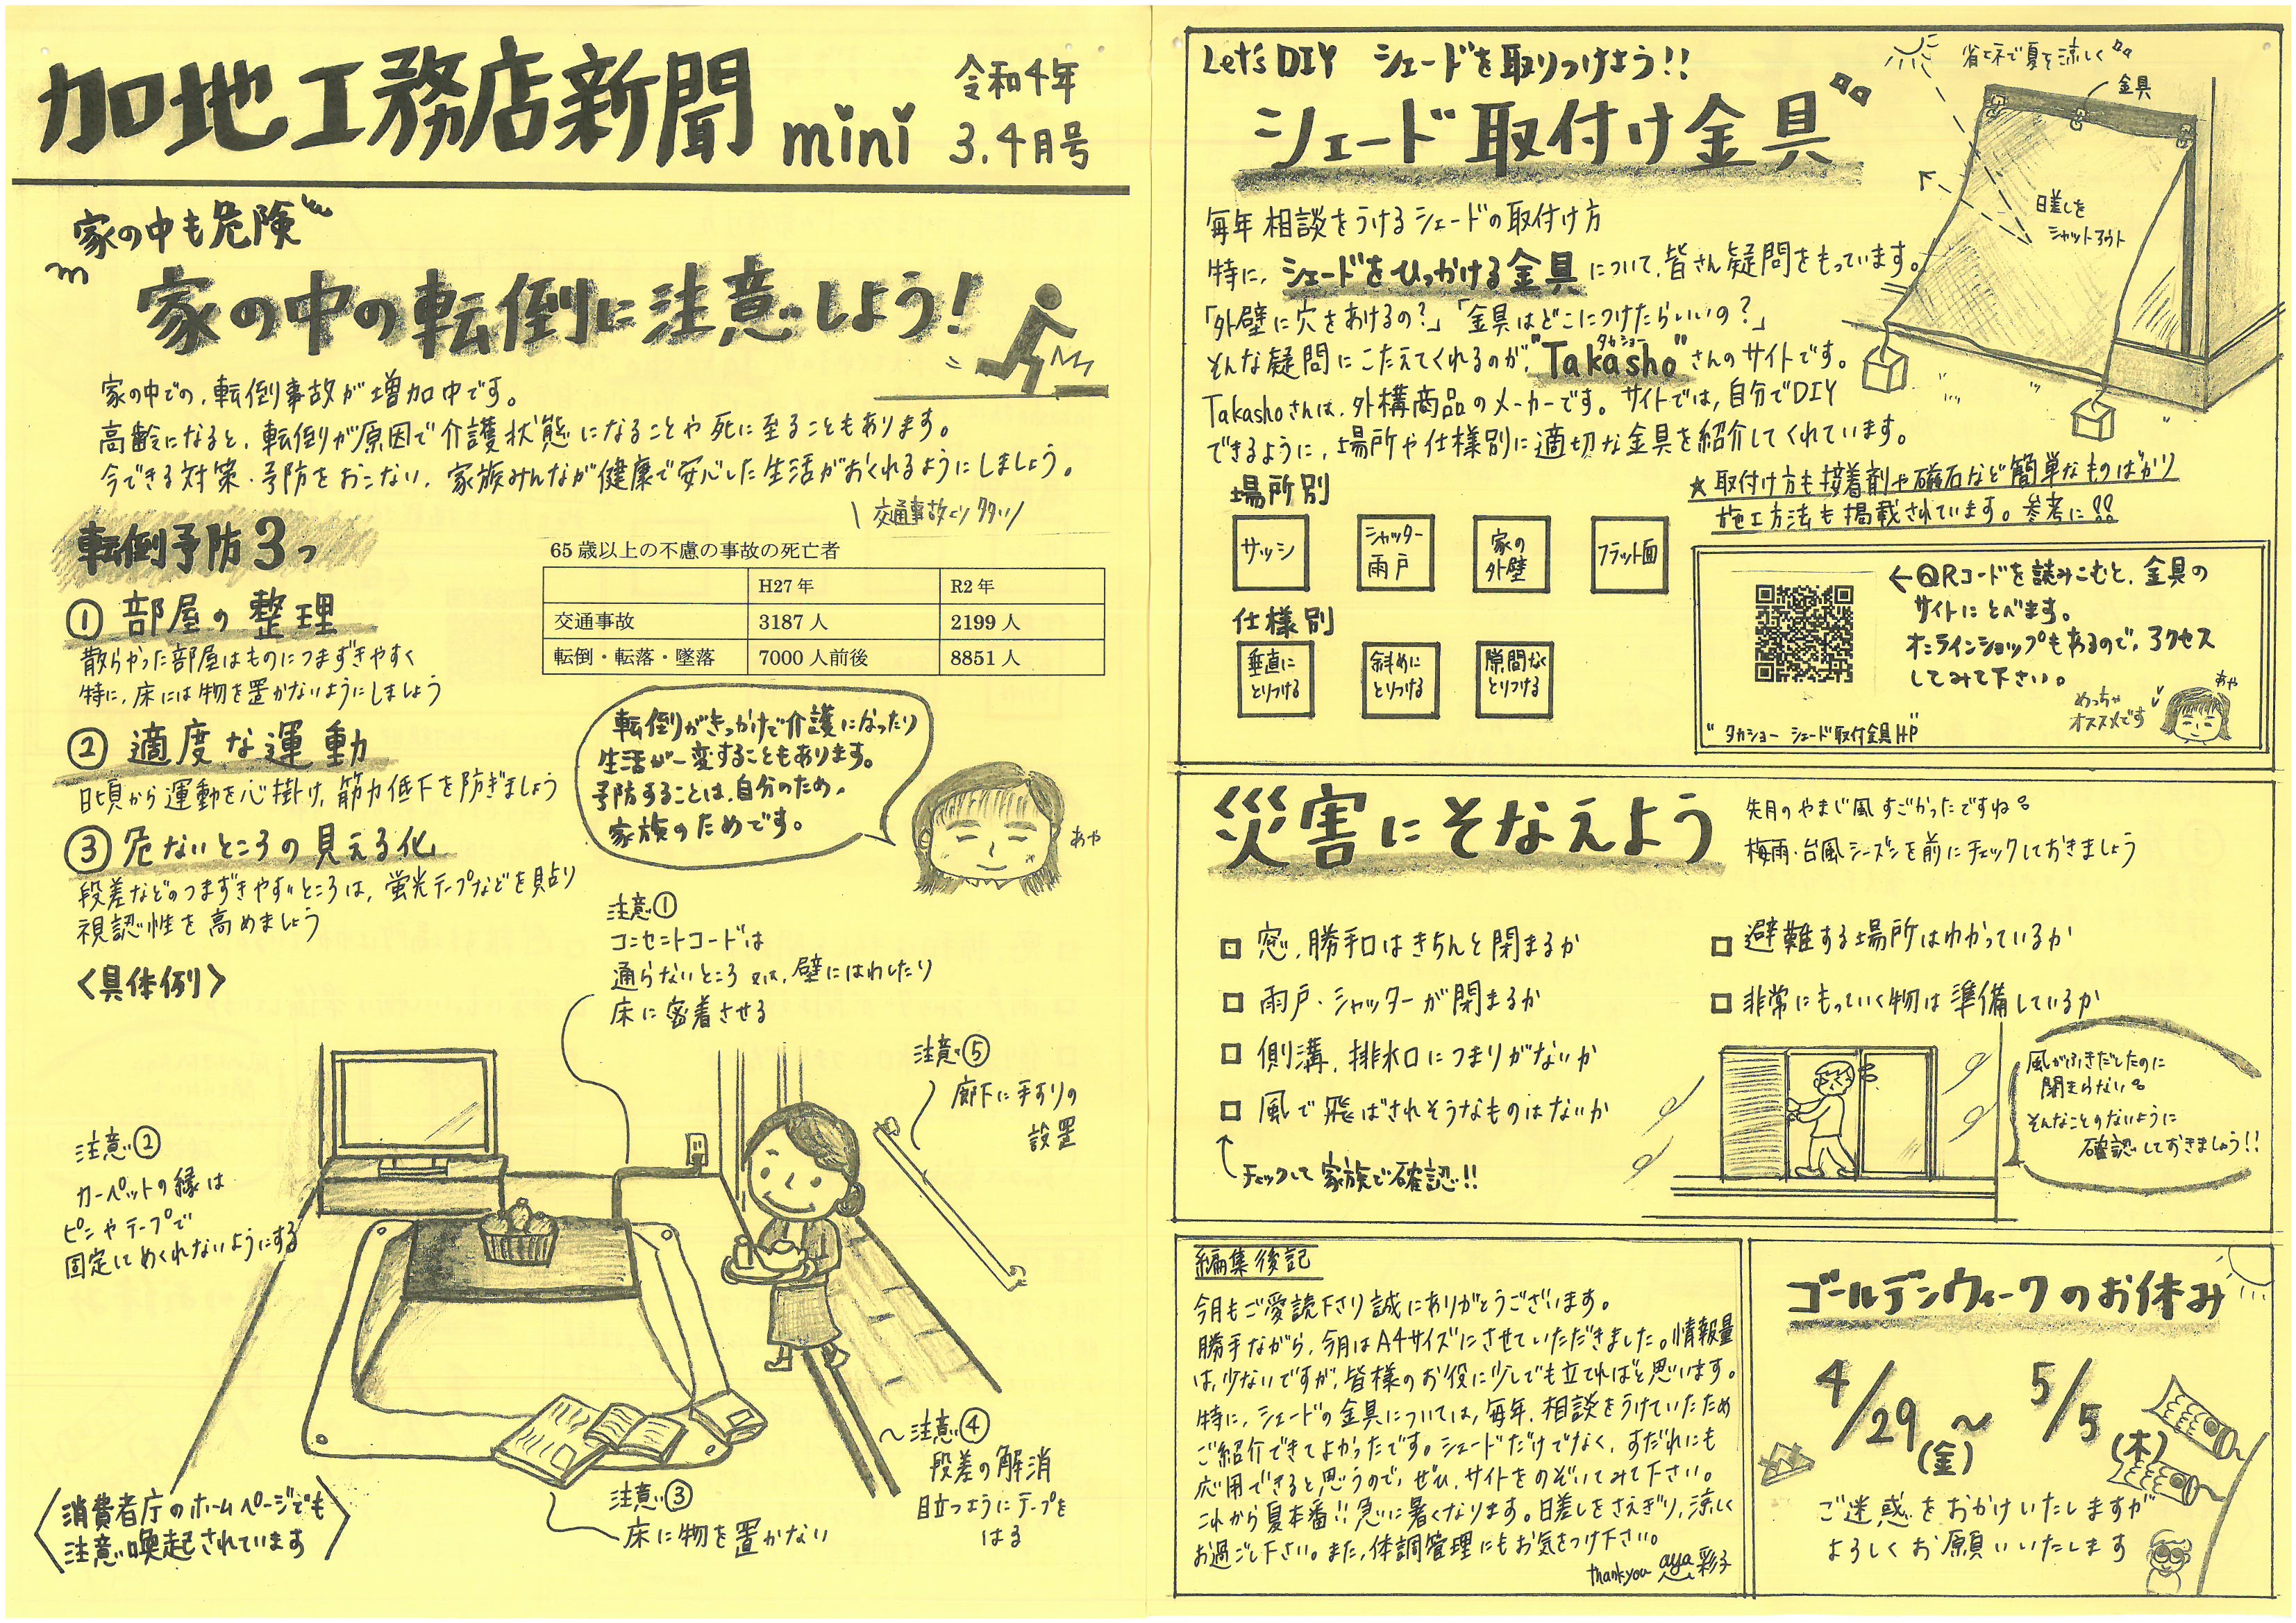 加地工務店新聞 mini
令和4年
3.4月号
家の中も危険
家の中の転倒に注意しよう!
家の中での、転倒事故が増加中です。
高齢になると、転倒が原因で介護状態になることや死に至ることもあります。
今できる対策・予防をおこない、家族みんなが健康で安心した生活がおくれるようにしましょう。
\交通事故より多い/
転倒予防3つ
① 部屋の整理
散らかった部屋はものにつまずきやすく
特に、床には物を置かないようにしましょう
② 適度な運動
日頃から運動を心掛け、筋力低下を防ぎましょう
③ 危ないところの見える化
段差などのつまずきやすいところは、蛍光テープなどを貼り
視認性を高めましょう
65歳以上の不慮の事故の死亡者
H27年 R2年
交通事故 3187人 2199人
転倒・転落・墜落 7000人前後 8851人
転倒がきっかけで介護になったり
生活が一変することもあります。
予防することは、自分のため、
家族のためです。
あや
<具体例>
注意①
コンセントコードは
通らないところ又は、壁にはわしたり
床に密着させる
注意⑤
廊下に手すりの
設置
注意②
カーペットの縁は
ピンやテープで
固定してめくれないようにする
注意③
床に物を置かない
注意④
段差の解消
目立つようにテープを
はる
消費者庁のホームページでも
注意喚起されています
Let's DIY シェードを取りつけよう!!
シェード取付け金具
省エネで夏を涼しく
金具
日差しを
シャットアウト
毎年相談をうけるシェードの取付け方
特に、シェードをひっかける金具について、皆さん疑問をもっています。
「外壁に穴をあけるの?」「金具はどこにつけたらいいの?」
タカショー
そんな疑問にこたえてくれるのが、"Takasho"さんのサイトです。
Takashoさんは、外構商品のメーカーです。サイトでは、自分でDIY
できるように、場所や仕様別に適切な金具を紹介してくれています。
★取付け方も接着剤や磁石など簡単なものばかり
施工方法も掲載されています。参考に!!
場所別
サッシ
シャッター
雨戸
家の
外壁
フラット面
仕様別
垂直に
とりつける
斜めに
とりつける
隙間なく
とりつける
←QRコードを読みこむと、金具の
サイトにとべます。
オンラインショップもあるので、アクセス
してみて下さい。
めっちゃ
オススメです
あや
"タカショー シェード取付金具HP"
災害にそなえよう
先月のやまじ風すごかったですね。
梅雨・台風シーズンを前にチェックしておきましょう
□ 窓、勝手口はきちんと閉まるか
□ 雨戸・シャッターが閉まるか
□ 側溝、排水口につまりがないか
□ 風で飛ばされそうなものはないか
チェックして家族で確認!!
□ 避難する場所はわかっているか
□ 非常にもっていく物は準備しているか
風がふきだしたのに
閉まらない。
そんなことのないように
確認しておきましょう!!
編集後記
今月もご愛読下さり誠にありがとうございます。
勝手ながら、今月はA4サイズにさせていただきました。情報量
は、少ないですが、皆様のお役に少しでも立てればと思います。
特に、シェードの金具については、毎年、相談をうけていたため
ご紹介できてよかったです。シェードだけでなく、すだれにも
応用できると思うので、ぜひ、サイトをのぞいてみて下さい。
これから夏本番!!急に暑くなります。日差しをさえぎり、涼しく
お過ごし下さい。また、体調管理にもお気をつけ下さい。
thankyou aya 彩子
ゴールデンウィークのお休み
4/29(金)~5/5(木)
ご迷惑をおかけいたしますが
よろしくお願いいたします